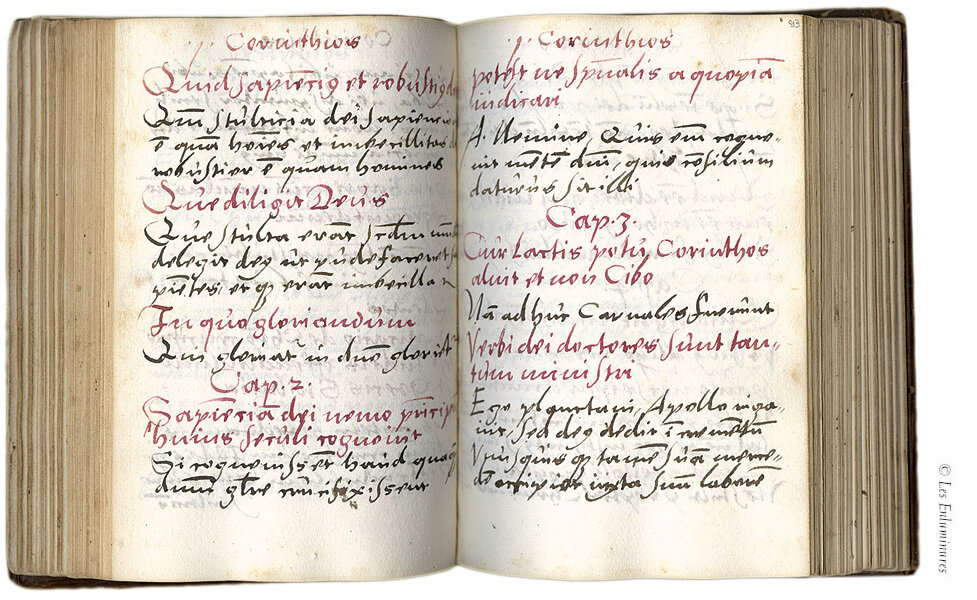 1. Corinthios
Quid sapiēcig et robustig
Qm̄ stulticia dei sapiencio
ē quā hoīes et imbecillitas
robustior ē quam homines
Que diligit Deus
Que stulta erāt scdm̄
delegit deg ut pudefaceret
piētes et q erāt imbecilla
In quo gloriandum
Qui gloriatr in dūo glorietr
Cap. 2.
Sapiēcia dei nemo prīcip
huius seculi cognovit
Si cognovissēt haud quaq
dnūm glīe crucifixissent
93
1. Corinthios
potest ne spūalis a quopiā
iudicari
A. Nemine, Quis em̄ cogno-
vit mētē dnī, quis cōsilium
daturus sit illi
Cap. 3.
Cur Lactis potu Corinthos
aluit et non Cibo
Nā adhuc Carnales fuerunt
Verbi dei doctores sunt tan-
tum ministri
Ego plantavi, Apollo riga-
vit, sed deg dedit īcremētū
Vnusquisq tamē suā merce-
dē accipiet iuxta suū laborē
© Les Enluminures